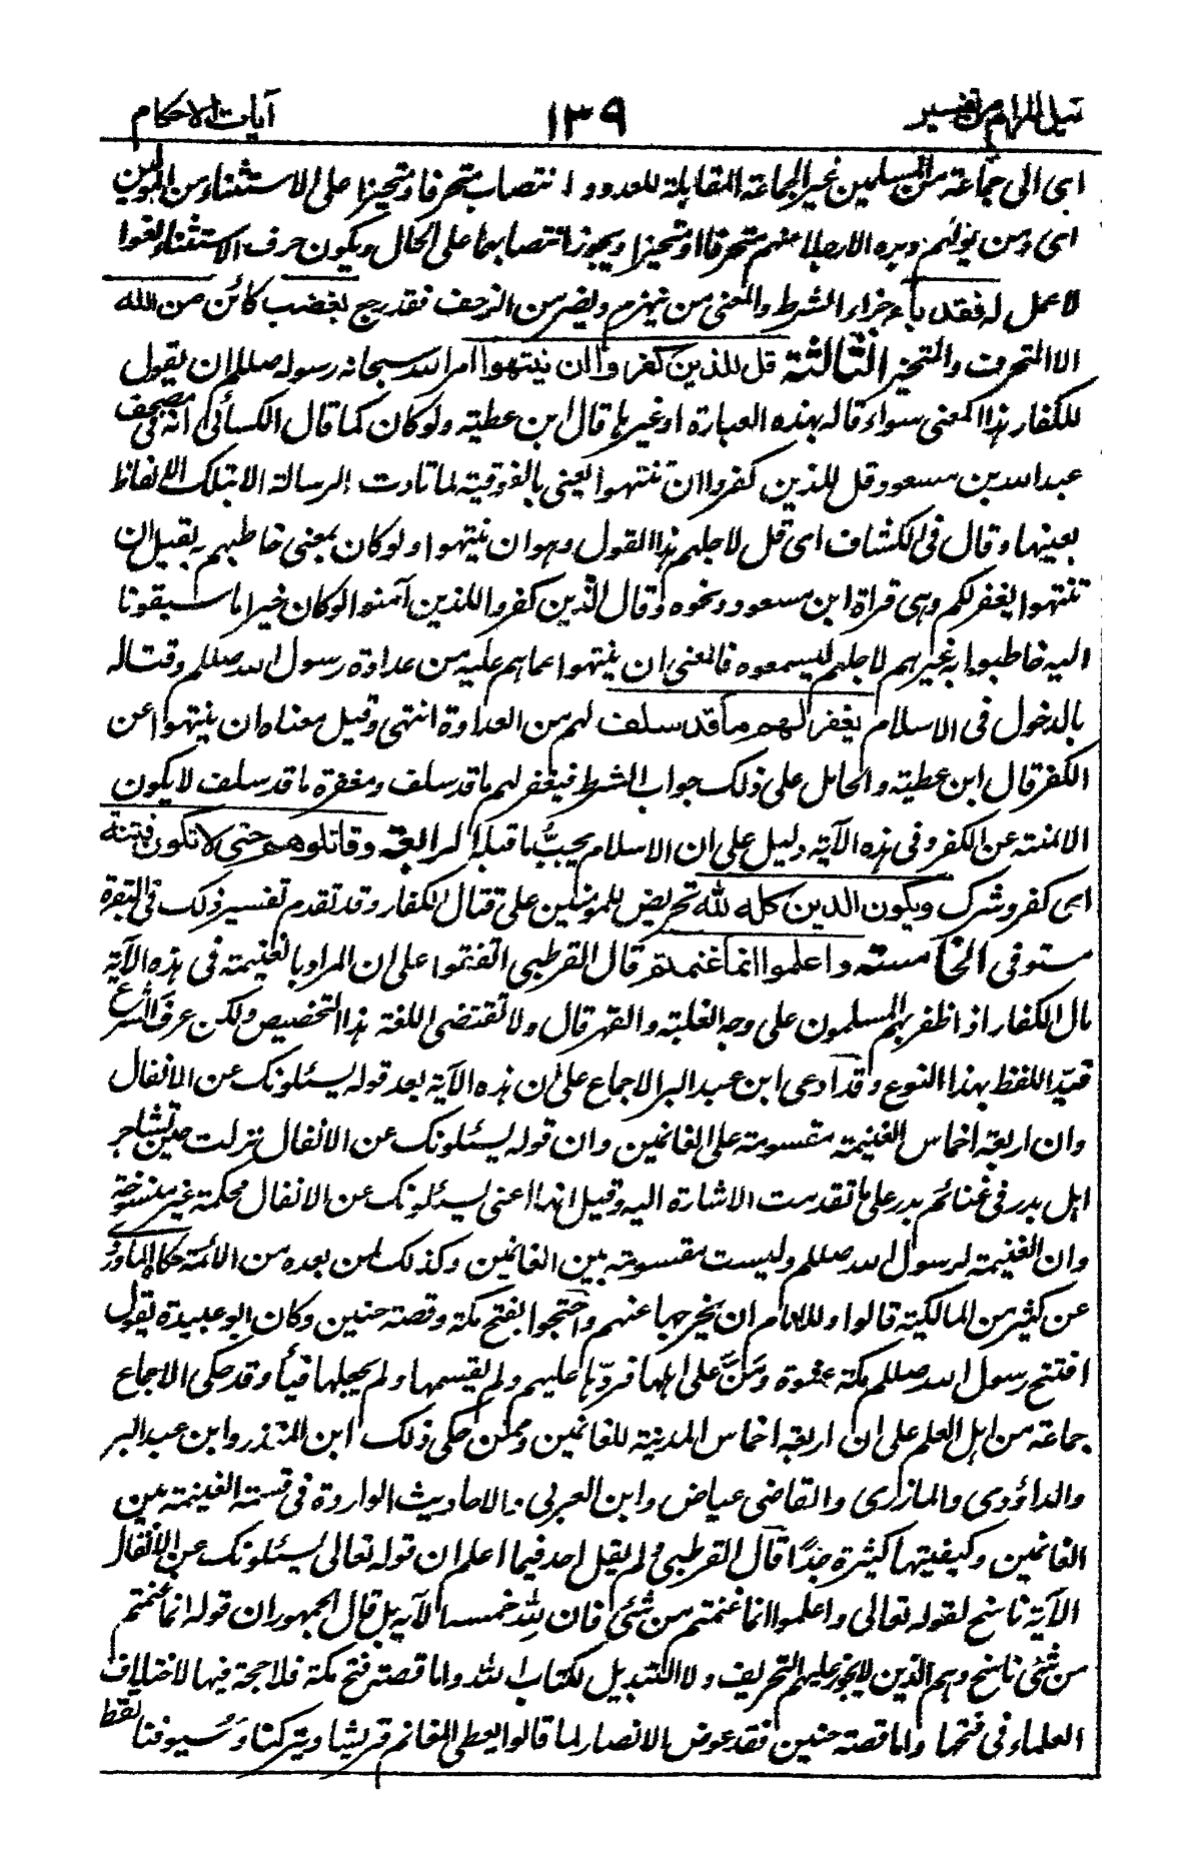 نيل المرام من تفسير ١٣٩ آيات الاحكام
اى الى جماعة من المسلمين غير الجماعة المقابلة للعدو و انتصاب متحرفا ومتحيزا على الاستثناء من المولين
اى ومن يولهم دبره الا رجلا منهم متحرفا او متحيزا ويجوز انتصابهما على الحال ويكون حرف الاستثناء لغوا
لا عمل له فقد باء جزاء الشرط والمعنى من ينهزم ويفر من الزحف فقد رجع بغضب كائن من الله
الا المتحرف والمتحيز الثالثة قل للذين كفروا ان ينتهوا امر الله سبحانه رسوله صللم ان يقول
للكفار هذا المعنى سواء قاله بهذه العبارة او غيرها قال ابن عطية ولو كان كما قال الكسائى انه فى مصحف
عبد الله بن مسعود قل للذين كفروا ان تنتهوا يعنى بالفوقية لما تادت الرسالة الا بتلك الالفاظ
بعينها وقال فى الكشاف اى قل لاجلهم هذا القول وهو ان ينتهوا ولو كان بمعنى خاطبهم به لقيل ان
تنتهوا يغفر لكم وهى قراة ابن مسعود ونحوه وقال الذين كفروا للذين آمنوا لو كان خيرا ما سبقونا
اليه خاطبوا به غيرهم لاجلهم ليسمعوه فالمعنى ان ينتهوا عما هم عليه من عداوة رسول الله صللم وقتاله
بالدخول فى الاسلام يغفر لهم ما قد سلف لهم من العداوة انتهى وقيل معناه ان ينتهوا عن
الكفر قال ابن عطية والحامل على ذلك جواب الشرط فيغفر لهم ما قد سلف ومغفرة ما قد سلف لا يكون
الا لمنته عن الكفر وفى هذه الآية دليل على ان الاسلام يجبّ ما قبله الرابعة وقاتلوهم حتى لا تكون فتنة
اى كفر وشرك ويكون الدين كله لله تحريض للمؤمنين على قتال الكفار وقد تقدم تفسير ذلك فى البقرة
مستوفى الخامسة واعلموا انما غنمتم قال القرطبى اتفقوا على ان المراد بالغنيمة فى هذه الآية
مال الكفار اذا ظفر بهم المسلمون على وجه الغلبة والقهر قال ولا تقتضى اللغة هذا التخصيص ولكن عرف الشرع
قيّد اللفظ بهذا النوع وقد ادعى ابن عبد البر الاجماع على ان هذه الآية بعد قوله يسئلونك عن الانفال
وان اربعة اخماس الغنيمة مقسومة على الغانمين وان قوله يسئلونك عن الانفال نزلت حين تشاجر
اهل بدر فى غنائم بدر على ما تقدمت الاشارة اليه وقيل انها اعنى يسئلونك عن الانفال محكمة غير منسوخة
وان الغنيمة لرسول الله صللم وليست مقسومة بين الغانمين وكذلك لمن بعده من الائمة حكاه الماوردى
عن كثير من المالكية قالوا وللامام ان يخرجها عنهم واحتجوا بفتح مكة وقصة حنين وكان ابو عبيدة يقول
افتتح رسول الله صللم مكة عنوة ومَنَّ على اهلها فردّها عليهم ولم يقسمها ولم يجعلها فيأ وقد حكى الاجماع
جماعة من اهل العلم على ان اربعة اخماس المدنية للغانمين وممن حكى ذلك ابن المنذر وابن عبد البر
والداؤدى والمازرى والقاضى عياض وابن العربى والاحاديث الواردة فى قسمة الغنيمة بين
الغانمين وكيفيتها كثيرة جدًا قال القرطبى ولم يقل احد فيما اعلم ان قوله تعالى يسئلونك عن الانفال
الآية ناسخ لقوله تعالى واعلموا انما غنمتم من شئ فان لله خمسه الآية بل قال الجمهور ان قوله انما غنمتم
من شئ ناسخ وهم الذين لا يجوز عليهم التحريف ولا التبديل لكتاب الله واما قصة فتح مكة فلا حجة فيها لاختلاف
العلماء فى فتحها واما قصة حنين فقد عوض الانصار لما قالوا يعطى الغانم قريشا ويتركنا وسُيوفنا تقط